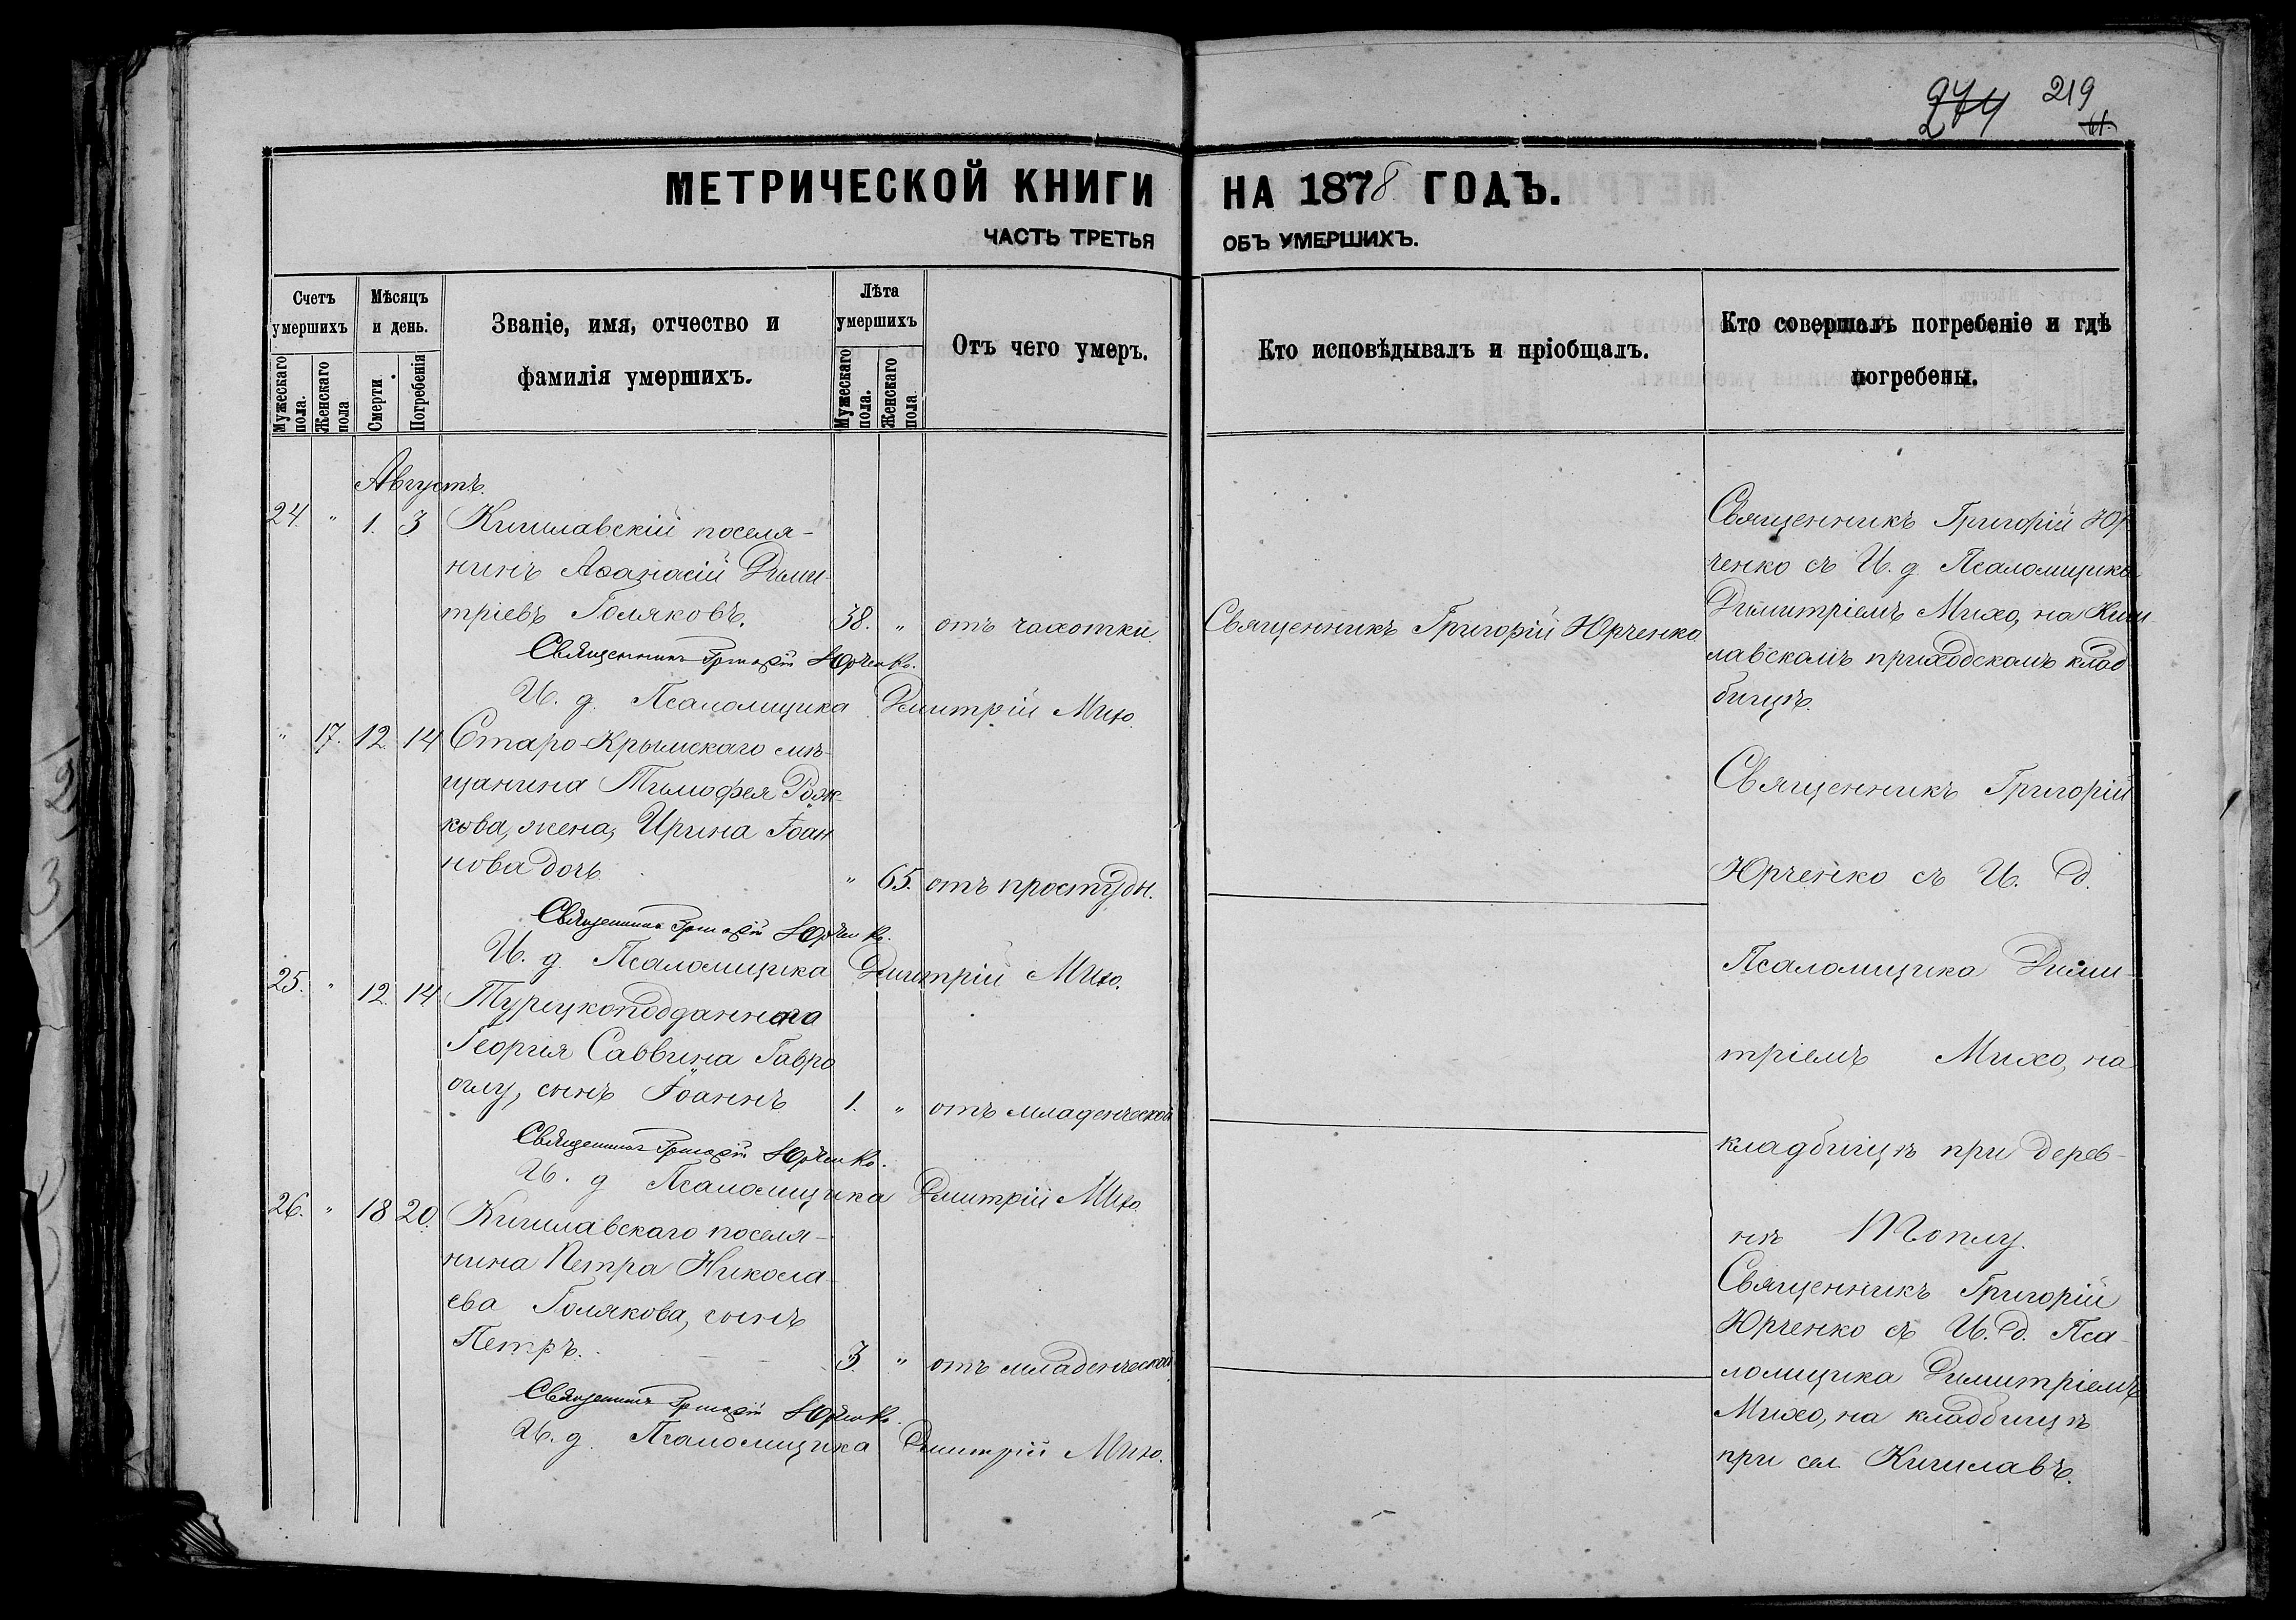 274 219
61.
МЕТРИЧЕСКОЙ КНИГИ НА 1878 ГОДЪ.
ЧАСТЬ ТРЕТЬЯ ОБЪ УМЕРШИХЪ.
Счетъ умершихъ
Мужескаго пола.
Женскаго пола
Мѣсяцъ и день.
Смерти
Погребенія
Званіе, имя, отчество и
фамилія умершихъ.
Лѣта умершихъ
Мужескаго пола.
Женскаго пола
Отъ чего умеръ.
Кто исповѣдывалъ и пріобщалъ.
Кто совершалъ погребеніе и гдѣ
погребены.
Августъ.
24. " 1. 3 Кишлавскій поселя-
нинъ Аѳанасій Дими-
тріевъ Голяковъ. 38. " отъ чахотки
Священникъ Григорій Юрченко.
И. д. Псаломщика Димитрій Михо.
Священникъ Григорій Юрченко
Священникъ Григорій Юр
ченко съ И. д. Псаломщика
Димитріемъ Михо, на Киш
лавскомъ приходскомъ клад
бищѣ.
" 17. 12. 14 Старо-Крымскаго мѣ-
щанина Тимофея Рож-
кова, жена, Ирина Іоан
нова дочь " 65. отъ простуды.
Священникъ Григорій Юрченко.
И. д. Псаломщика Димитрій Михо.
25. " 12. 14 Турецкоподданнаго
Георгія Саввина Гавро
оглу, сынъ Іоаннъ 1. " отъ младенческой
Священникъ Григорій Юрченко.
И. д. Псаломщика Димитрій Михо
Священникъ Григорій
Юрченко съ И. д.
Псаломщика Дими-
тріемъ Михо, на
кладбищѣ при дерев-
нѣ Топлу.
26. " 18 20. Кишлавскаго поселя-
нина Петра Никола-
ева Голякова, сынъ
Петръ. 3 " отъ младенческой
Священникъ Григорій Юрченко.
И. д. Псаломщика Димитрій Михо.
Священникъ Григорій
Юрченко съ И. д. Пса-
ломщика Димитріемъ
Михо, на кладбищѣ
при сел. Кишлавѣ.